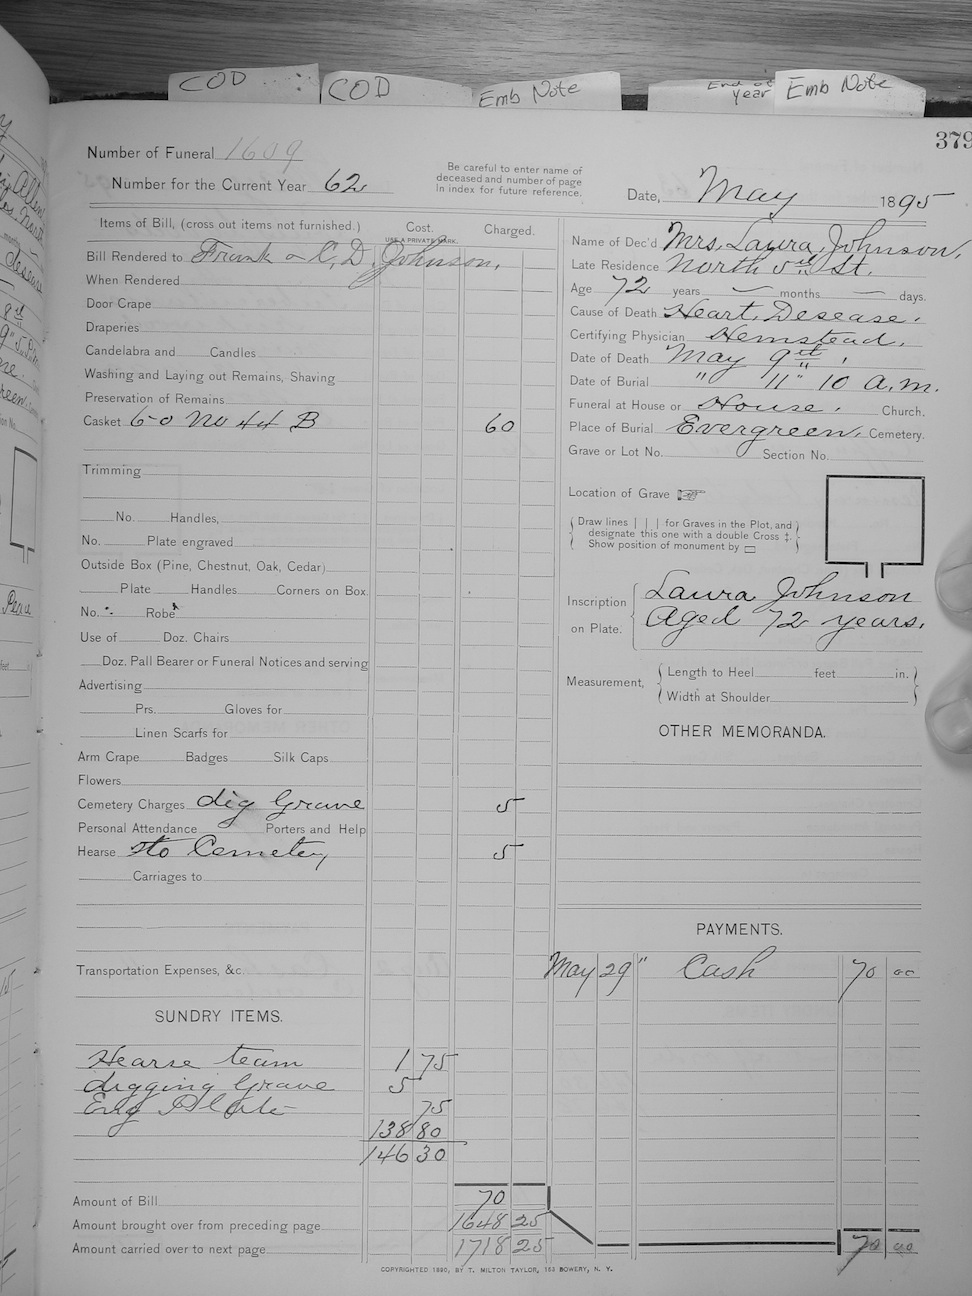 COD
COD
Emb Note
End of year
Emb Note
379
Number of Funeral 1609
Number for the Current Year 62
Be careful to enter name of
deceased and number of page
in index for future reference.
Date, May 1895
Items of Bill, (cross out items not furnished.)
Cost.
USE A PRIVATE MARK.
Charged.
Bill Rendered to Frank & C. D. Johnson.
When Rendered
Door Crape
Draperies
Candelabra and Candles
Washing and Laying out Remains, Shaving
Preservation of Remains
Casket 6-0 No 44 B 60
Trimming
No. Handles,
No. Plate engraved
Outside Box (Pine, Chestnut, Oak, Cedar)
Plate Handles Corners on Box
No. Robe
Use of Doz. Chairs
Doz. Pall Bearer or Funeral Notices and serving
Advertising
Prs. Gloves for
Linen Scarfs for
Arm Crape Badges Silk Caps
Flowers
Cemetery Charges dig Grave 5
Personal Attendance Porters and Help
Hearse to Cemetery 5
Carriages to
Transportation Expenses, &c.
SUNDRY ITEMS.
Hearse team 1 75
digging Grave 5
Eng Plate 75
138 80
146 30
Amount of Bill 70
Amount brought over from preceding page 1648 25
Amount carried over to next page 1718 25
Name of Dec'd Mrs. Laura Johnson.
Late Residence North 5th St.
Age 72 years — months — days.
Cause of Death Heart Desease.
Certifying Physician Hemstead.
Date of Death May 9th.
Date of Burial " 11" 10 a.m.
Funeral at House or House. Church.
Place of Burial Evergreen. Cemetery.
Grave or Lot No. Section No.
Location of Grave
Draw lines | | | for Graves in the Plot, and
designate this one with a double Cross ‡.
Show position of monument by ▭
Inscription on Plate.
Laura Johnson
Aged 72 years.
Measurement, Length to Heel feet in.
Width at Shoulder
OTHER MEMORANDA.
PAYMENTS.
May 29" Cash 70 00
70 00
COPYRIGHTED 1890, BY T. MILTON TAYLOR, 163 BOWERY, N. Y.